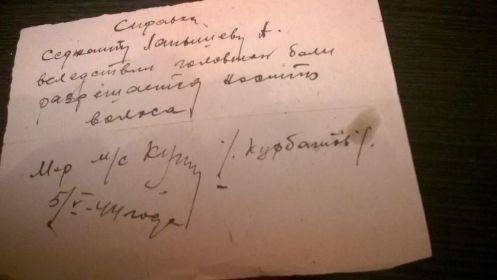 Справка
Сержанту Лапышеву А.
вследствии головных боли
разрешается носить
волоса
М-р м/с Курб /. Курбатов /.
5/V-44 года